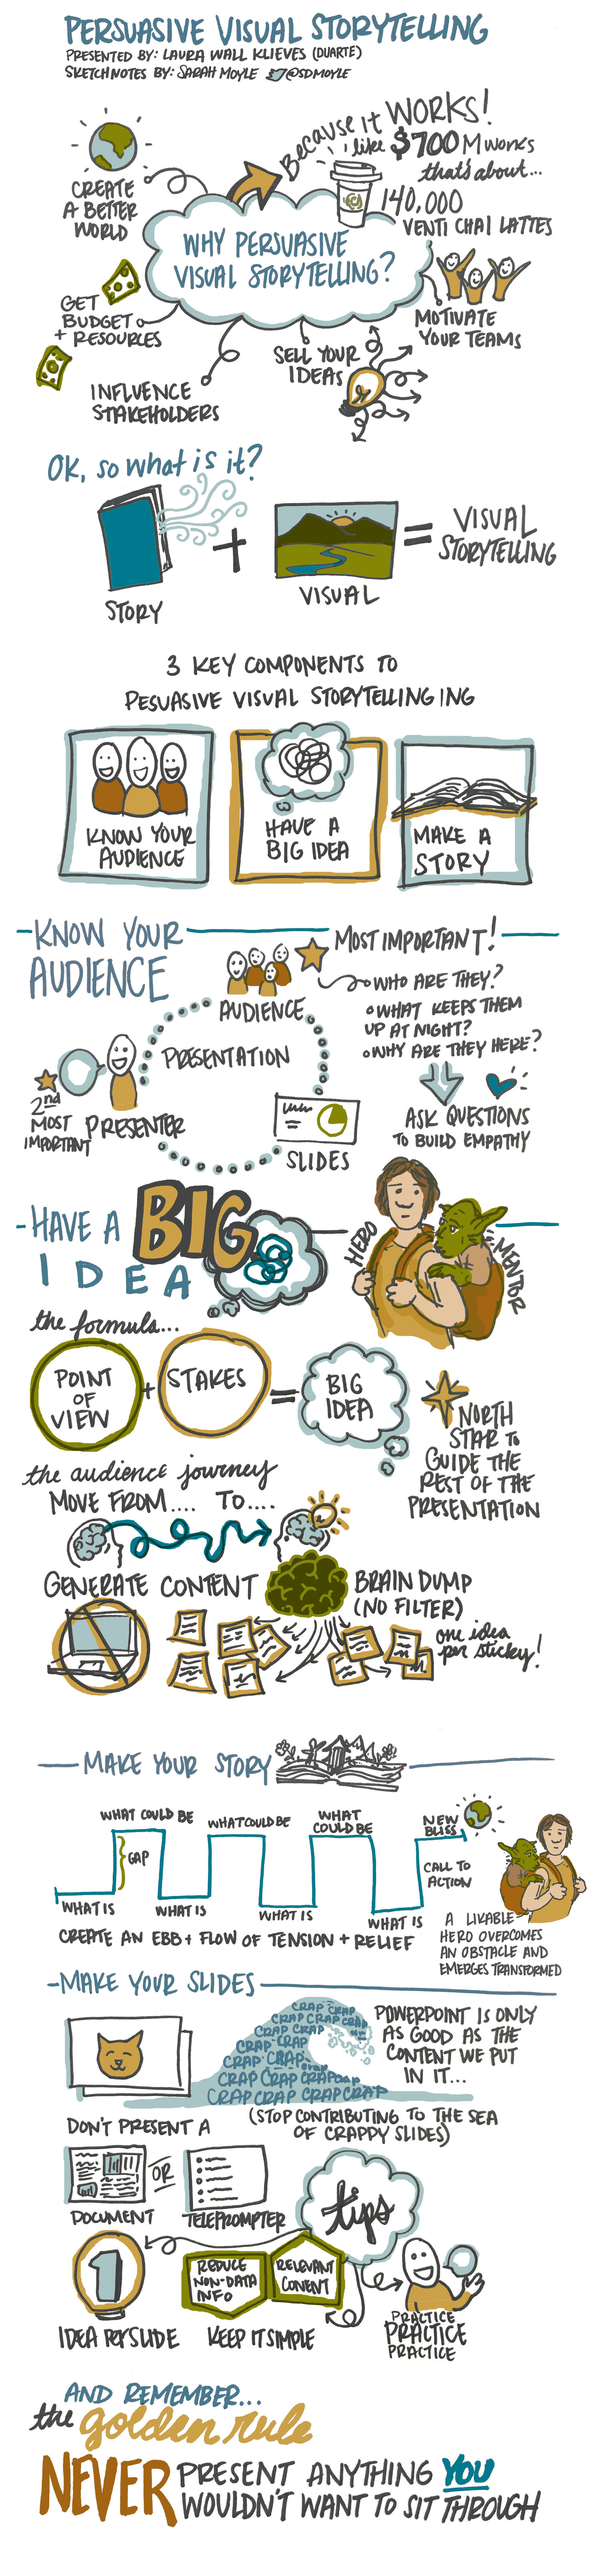 PERSUASIVE VISUAL STORYTELLING
PRESENTED BY: LAURA WALL KLIEVES (DUARTE)
SKETCHNOTES BY: SARAH MOYLE @SDMOYLE
BECAUSE IT WORKS!
like $700M works
that's about...
140,000
VENTI CHAI LATTES
CREATE
A BETTER
WORLD
WHY PERSUASIVE
VISUAL STORYTELLING?
GET
BUDGET
+ RESOURCES
MOTIVATE
YOUR TEAMS
SELL YOUR
IDEAS
INFLUENCE
STAKEHOLDERS
OK, so what is it?
STORY
+
VISUAL
=
VISUAL
STORYTELLING
3 KEY COMPONENTS TO
PESUASIVE VISUAL STORYTELLING ING
KNOW YOUR
AUDIENCE
HAVE A
BIG IDEA
MAKE A
STORY
KNOW YOUR
AUDIENCE
MOST IMPORTANT!
WHO ARE THEY?
WHAT KEEPS THEM
UP AT NIGHT?
WHY ARE THEY HERE?
AUDIENCE
PRESENTATION
2nd
MOST
IMPORTANT
PRESENTER
SLIDES
ASK QUESTIONS
TO BUILD EMPATHY
HAVE A BIG
IDEA
HERO
MENTOR
the formula...
POINT
OF
VIEW
+
STAKES
=
BIG
IDEA
NORTH
STAR to
GUIDE THE
REST OF THE
PRESENTATION
the audience journey
MOVE FROM.... TO....
GENERATE CONTENT
BRAIN DUMP
(NO FILTER)
one idea
per sticky!
MAKE YOUR STORY
WHAT COULD BE
WHAT COULD BE
WHAT
COULD BE
NEW
BLISS
GAP
CALL TO
ACTION
WHAT IS
WHAT IS
WHAT IS
WHAT IS
CREATE AN EBB + FLOW OF TENSION + RELIEF
A LIKABLE
HERO OVERCOMES
AN OBSTACLE AND
EMERGES TRANSFORMED
MAKE YOUR SLIDES
CRAP CRAP
CRAP CRAP CRAP
CRAP CRAP
CRAP CRAP
CRAP CRAP
CRAP CRAP CRAP CRAP
CRAP CRAP CRAP CRAP
POWERPOINT IS ONLY
AS GOOD AS THE
CONTENT WE PUT
IN IT...
(STOP CONTRIBUTING TO THE SEA
OF CRAPPY SLIDES)
DON'T PRESENT A
DOCUMENT
OR
TELEPROMPTER
tips
1
IDEA PER SLIDE
REDUCE
NON-DATA
INFO
RELEVANT
CONTENT
KEEP IT SIMPLE
PRACTICE
PRACTICE
PRACTICE
AND REMEMBER...
the golden rule
NEVER PRESENT ANYTHING YOU
WOULDN'T WANT TO SIT THROUGH